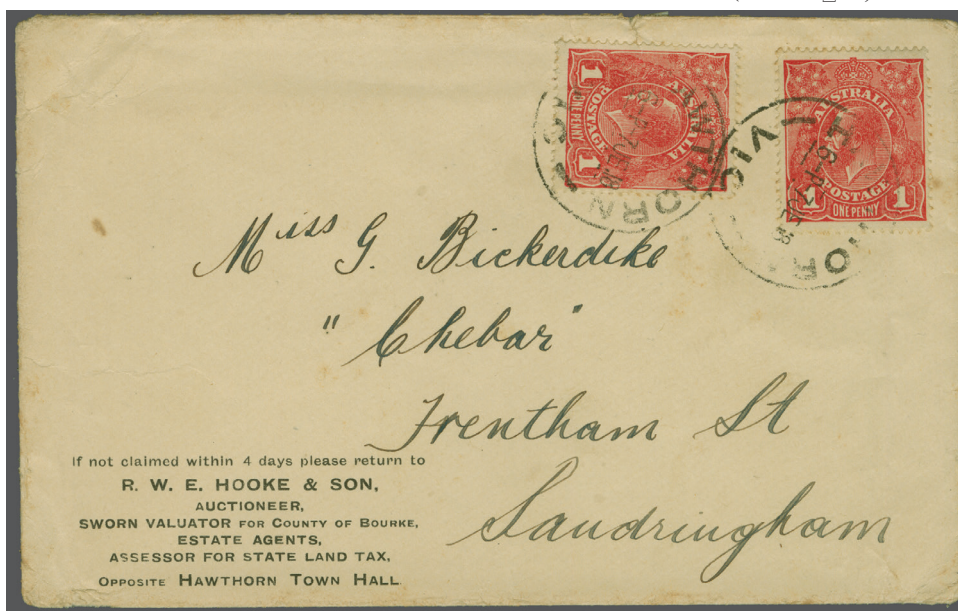 1 POSTAGE 1
ONE PENNY
AUSTRALIA
AUSTRALIA
POSTAGE
1 ONE PENNY 1
VIC
Miss G. Bickerdike
"Chebar"
Trentham St
Sandringham
If not claimed within 4 days please return to
R. W. E. HOOKE & SON,
AUCTIONEER,
SWORN VALUATOR FOR COUNTY OF BOURKE,
ESTATE AGENTS,
ASSESSOR FOR STATE LAND TAX,
OPPOSITE HAWTHORN TOWN HALL.